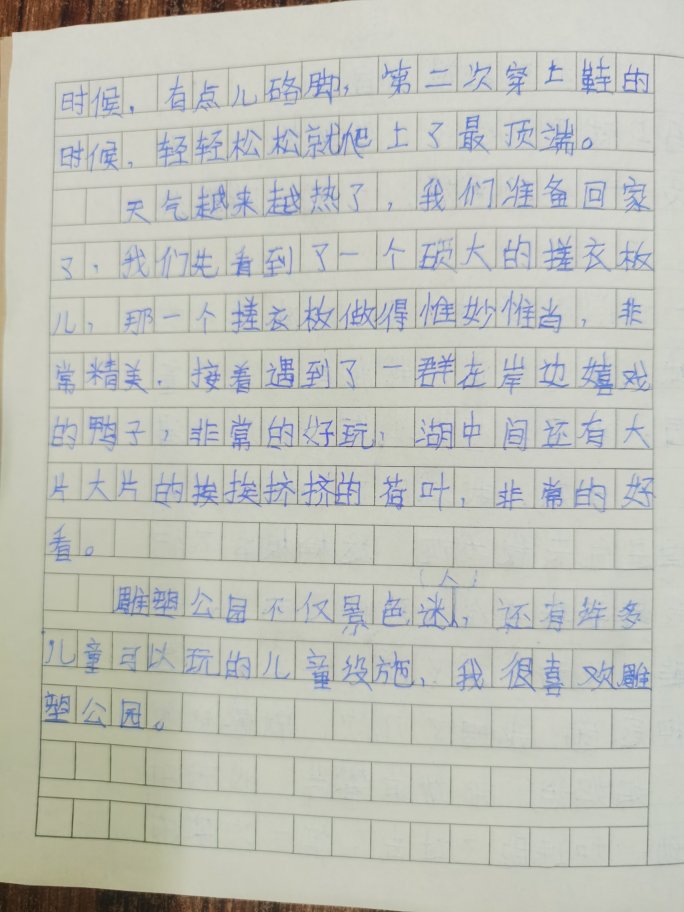 时候，有点儿硌脚，第二次穿上鞋的
时候，轻轻松松就爬上了最顶端。
天气越来越热了，我们准备回家
了，我们先看到了一个硕大的搓衣板
儿，那一个搓衣板做得惟妙惟肖，非
常精美．接着遇到了一群在岸边嬉戏
的鸭子，非常的好玩，湖中间还有大
片大片的挨挨挤挤的荷叶，非常的好
看。
（人）
雕塑公园不仅景色迷人，还有许多
儿童可以玩的儿童设施，我很喜欢雕
塑公园。